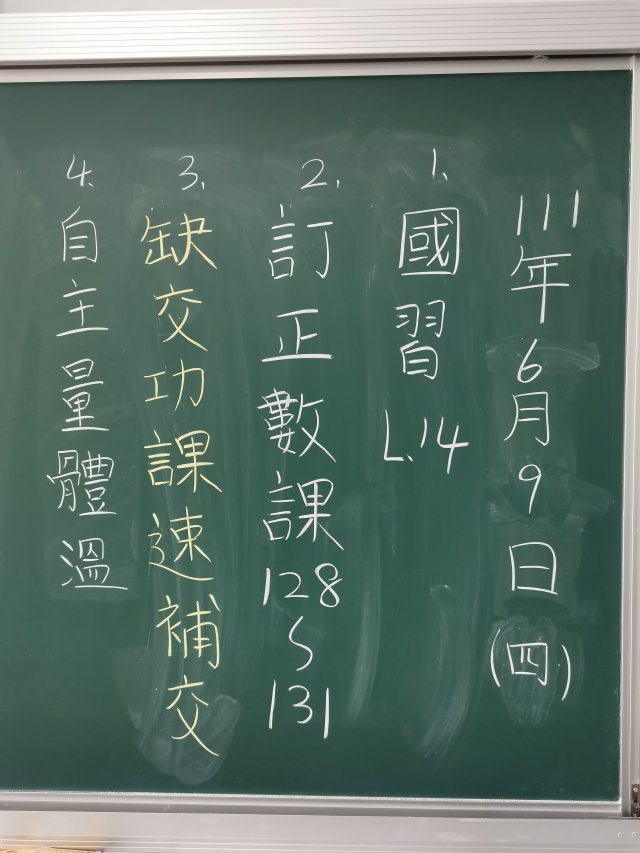 111年6月9日(四)
1.國習L.14
2.訂正數課128~131
3.缺交功課速補交
4.自主量體溫